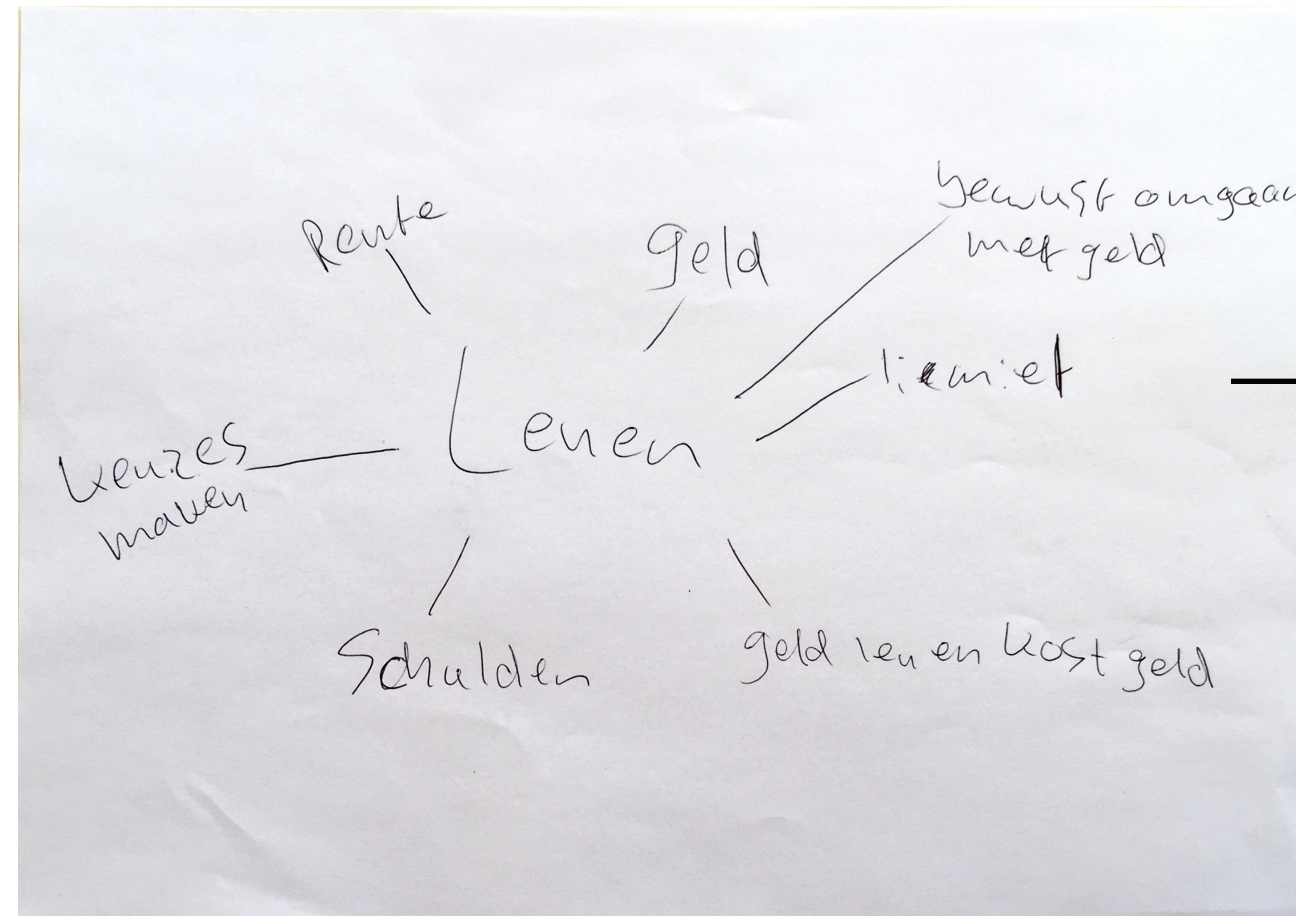 Rente
geld
bewust omgaan
met geld
liemiet
Lenen
keuzes
maken
Schulden
geld lenen kost geld